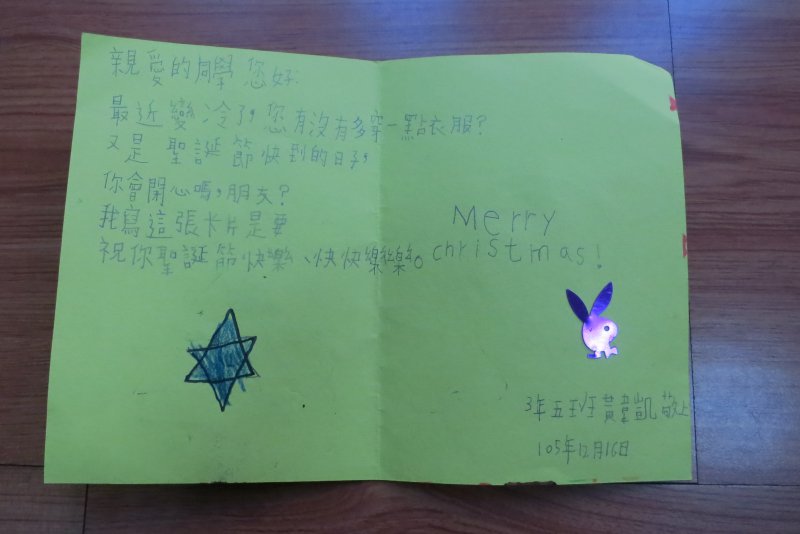 親愛的同學 您好:
最近變冷了,您有沒有多穿一點衣服?
又是聖誕節快到的日子,
你會開心嗎,朋友?
我寫這張卡片是要
祝你聖誕節快樂、快快樂樂。
Merry
christmas!
3年五班黃韋凱敬上
105年12月16日